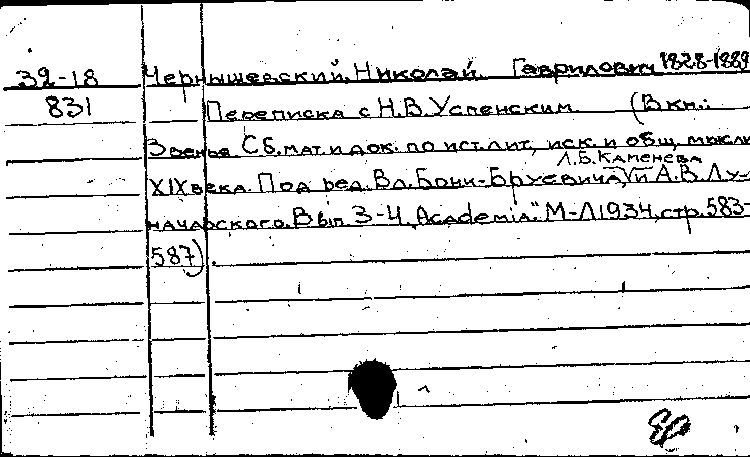 32-18 Чернышевский, Николай Гаврилович 1828-1889
831 Переписка с Н.В. Успенским (В кн.:
Звенья. Сб. мат. и док. по ист. лит., иск. и общ. мысли
Л.Б. Каменева
XIX века. Под ред. Вл. Бонч-Бруевича, и А.В. Лу-
начарского. Вып. 3-4 "Academia." М-Л 1934, стр. 583-
587).